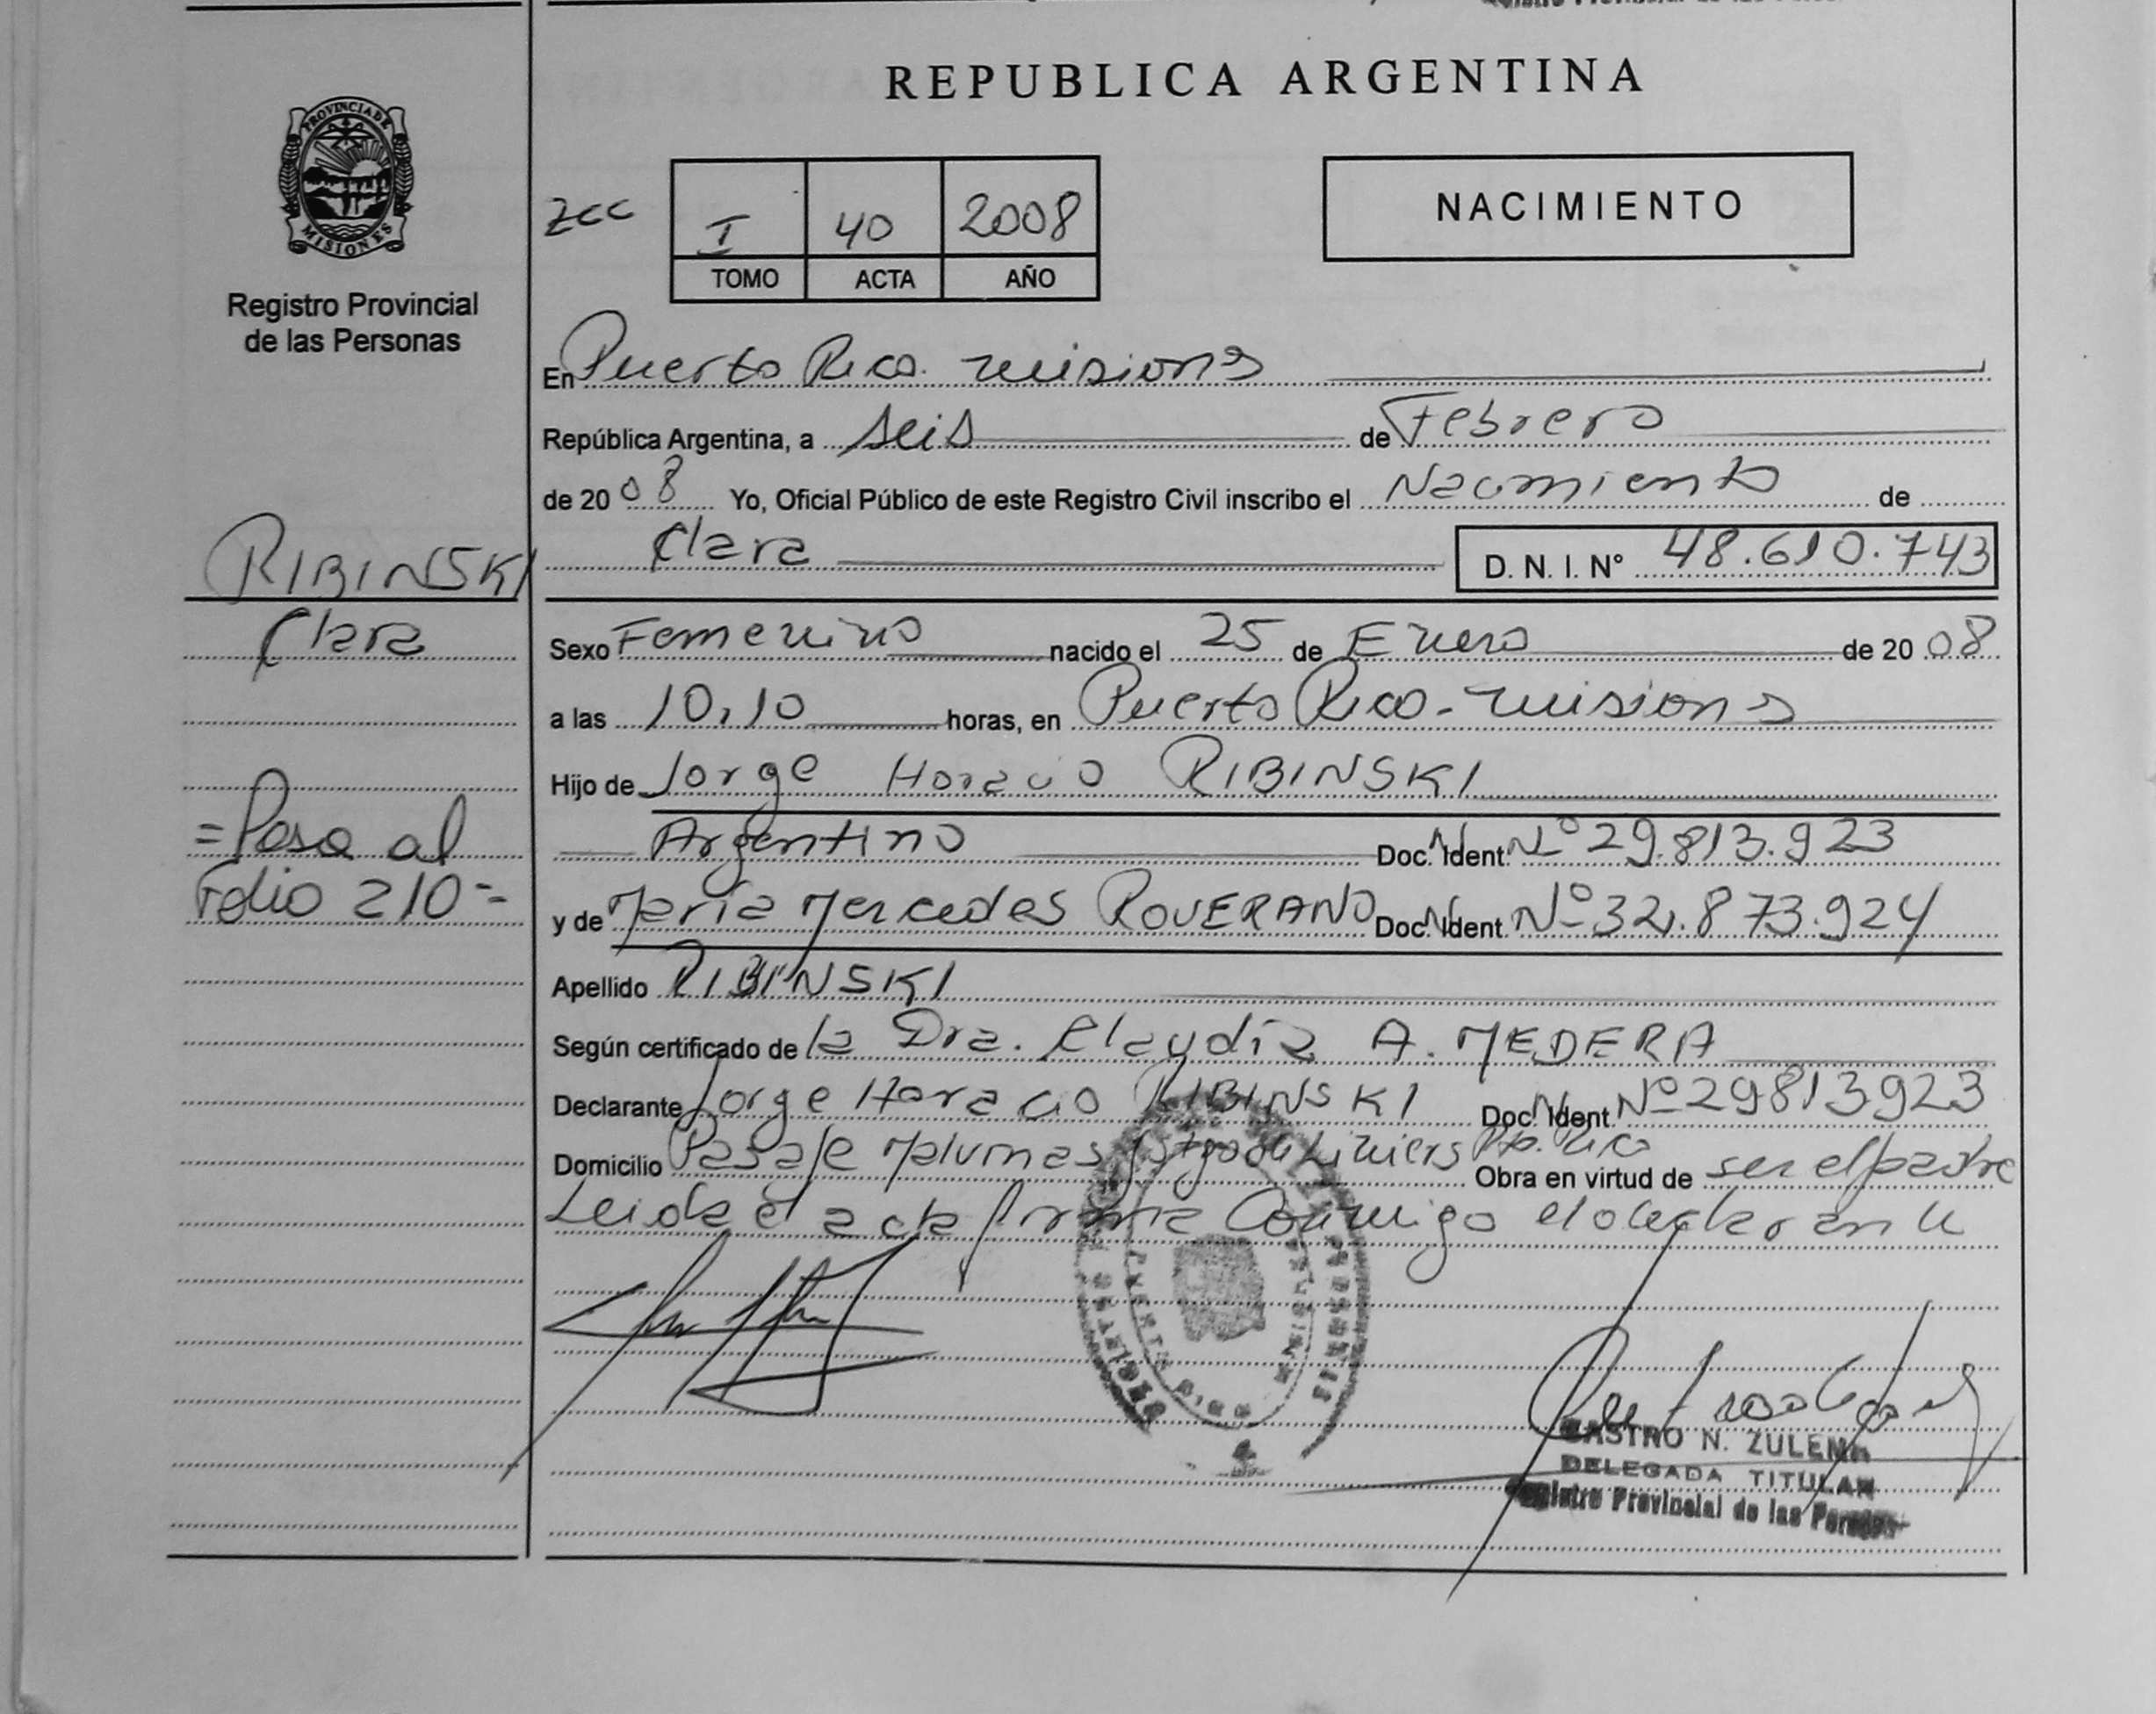 REPUBLICA ARGENTINA
PROVINCIA DE
MISIONES
Registro Provincial
de las Personas
zcc
I 40 2008
TOMO ACTA AÑO
NACIMIENTO
En Puerto Rico. misiones
República Argentina, a seis de Febrero
de 20 08 Yo, Oficial Público de este Registro Civil inscribo el Nacimiento de
Clara D. N. I. N° 48.610.743
RIBINSKI
Clara
Sexo Femenino nacido el 25 de Enero de 20 08
a las 10,10 horas, en Puerto Rico - misiones
Hijo de Jorge Horacio RIBINSKI
Argentino Doc. Ident. Nº 29.813.923
y de María Mercedes ROVERANO Doc. Ident. Nº 32.873.924
=Pasa al
Folio 210=
Apellido RIBINSKI
Según certificado de la Dra. Claudia A. MEDERA
Declarante Jorge Horacio RIBINSKI Doc. Ident. Nº 29813923
Domicilio Pasaje Liniers Pto. Rico Obra en virtud de ser el padre
Leida el acta firma Conmigo el declarante
CASTRO N. ZULEMA
DELEGADA TITULAR
Registro Provincial de las Personas